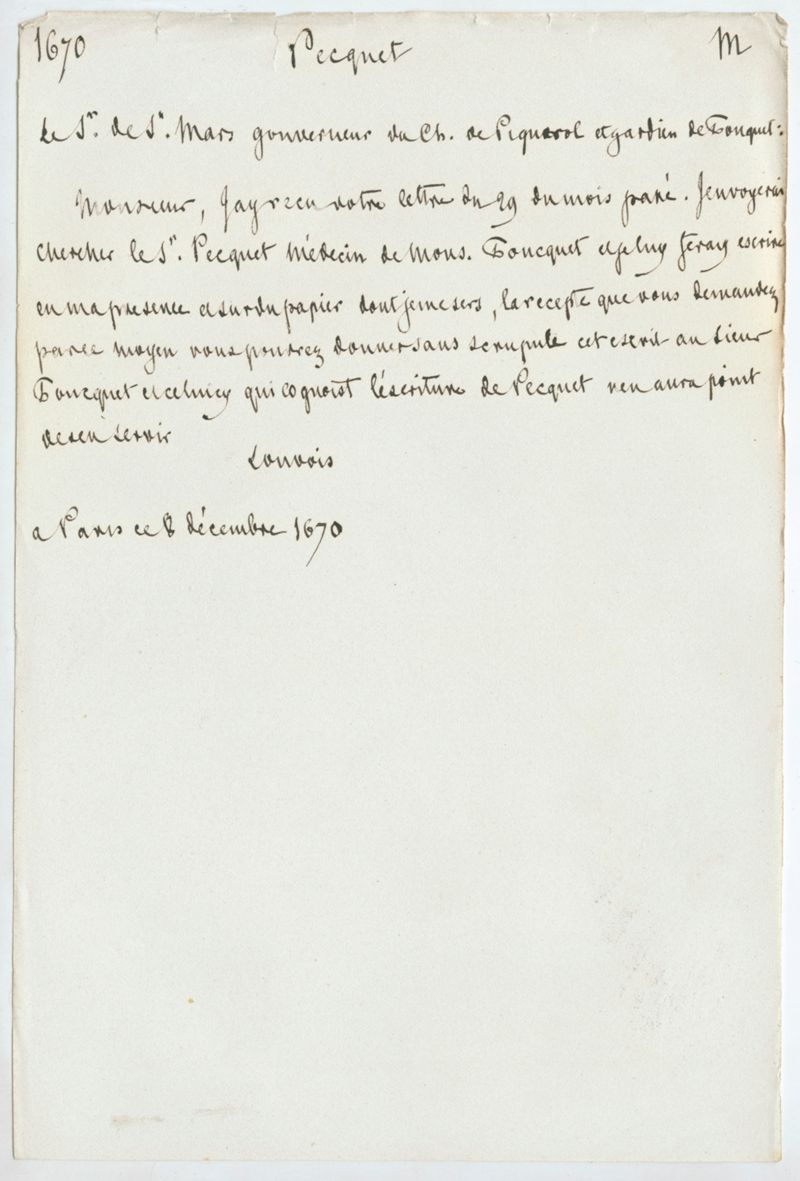 1670 Pecquet M
Le Sr. de St. Mars gouverneur du Ch. de Pignerol et gardien de Fouquet :
Monsieur, Jay receu votre lettre du 29 du mois passé. Jenvoyerai
chercher le Sr. Pecquet Médecin de Mons. Foucquet et je luy feray escrire
en ma presence et sur du papier dont je me sers, la recepte que vous demandez
par ce moyen vous pourrez donner sans scrupule cet escrit au Sieur
Foucquet et celuicy qui cognoist l'éscriture de Pecquet n'en aura point
de sen servir
Louvois
a Paris ce 8 décembre 1670